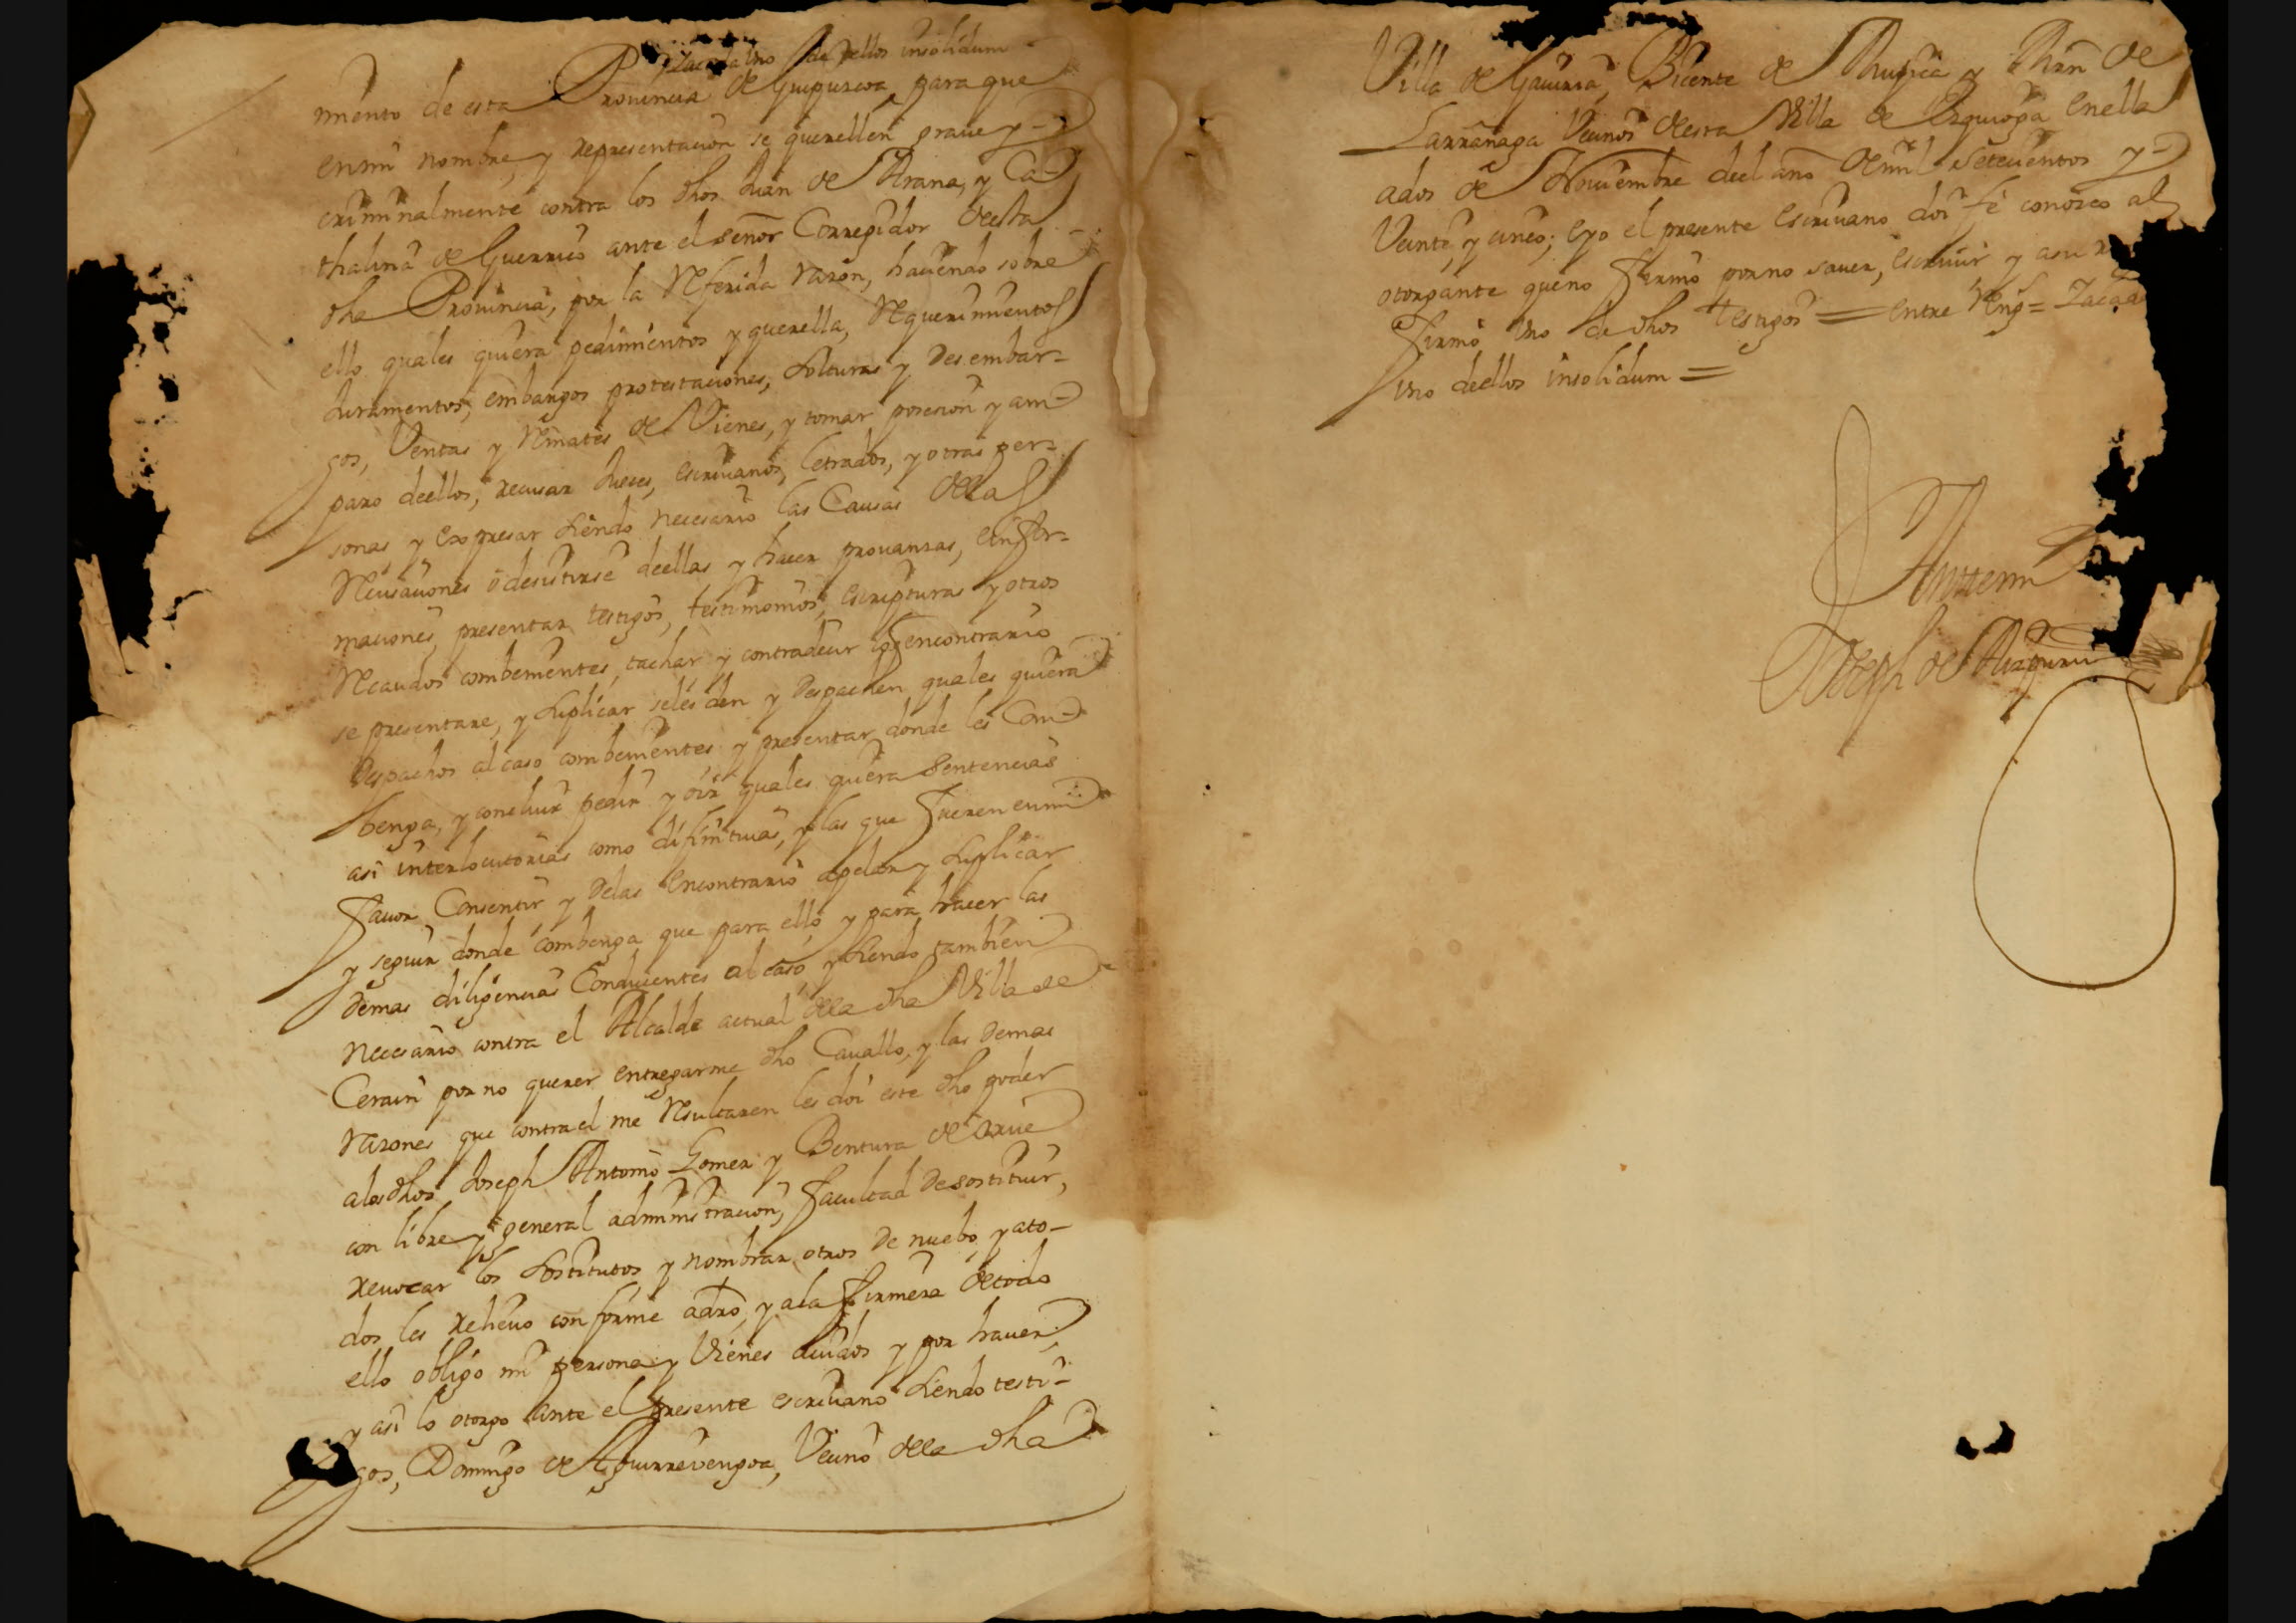 y acada Uno de ellos insolidum
miento de esta Provincia de Guipuzcoa, para que
enmi nombre, y representacion se querellen graue y
criminalmente contra los dhos Juan de Arana, y Ca-
thalina de Guerrico ante el señor Corregidor desta
dha Provincia, por la Referida razon, haciendo sobre
ello quales quiera pedimientos y querella, Requerimientos
Juramentos, embargos protestaciones, solturas y desembar-
gos, Ventas y Remates de Vienes, y tomar posesion y am-
paro deellos, recusar Jueces, escriuanos, letrados, y otras per-
sonas y expresar siendo necesario las Causas della
Recusaciones ô desistirse deellas y hacer prouanzas, einfor-
maciones, presentar testigos, testimonios, escripturas y otros
Recaudos combenientes, tachar y contradecir lo encontrario
se presentare, y suplicar seles den y despachen quales quiera
despachos al caso combenientes y presentar donde les Com-
benga, y concluir pedir y oir quales quiera Sentencias
asi interlocutorias como difinitiuas, y las que fueren enmi
fauor Consentir y delas encontrario apelar y suplicar
y seguir donde combenga que para ello y para hacer las
demas diligencias Conducientes al caso, y siendo tambien
necesario contra el Alcalde actual dela dha Villa de
Cerain por no querer entregarme dho Cauallo, y las demas
razones que contra el me Resultaren les doi este dho poder
alos dhos Joseph Antonio Gomez y Bentura de
con libre y general administracion, facultad de sostituir,
reuocar los sostitutos y nombrar otros de nuebo, y ato-
dos les relieuo conforme adro, y ala firmeza de todo
ello obligo mi persona y Vienes auidos y por hauer,
y asi lo otorgo ante el presente escriuano siendo testi-
gos, Domingo de Aguirrevengoa, Vecino dela dha
Villa de Gauiria, Bicente de Mugica y Mrn de
Larrañaga Vecinos desta Villa de Ezquioga Enella
ados de Nouiembre deel año de mil Setecientos y
Veinte, y cinco; eyo el presente Escriuano doi fe conozco al
otorgante queno firmo por no sauer, escriuir y asu r
firmo Uno de dhos testigos = entre Reng = Iacada
Uno deellos insolidum =
Antemi
Joseph de